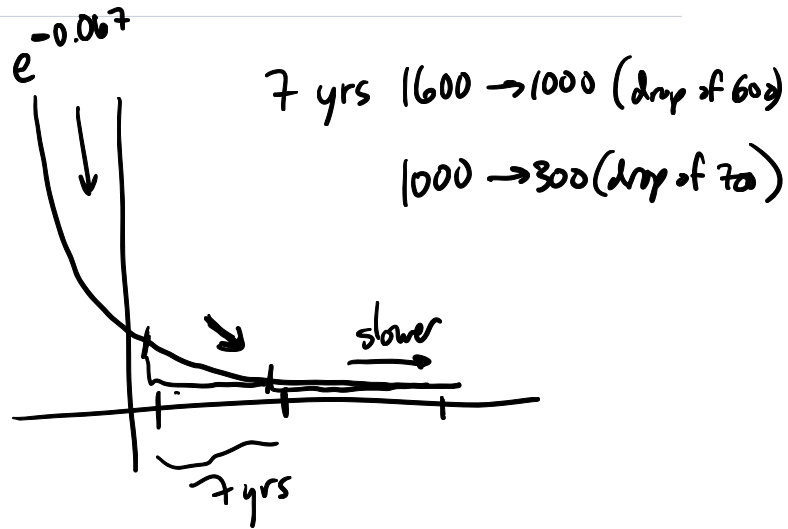 e^-0.067
7 yrs 1600 → 1000 (drop of 600)
1000 → 300 (drop of 700)
slower
7 yrs